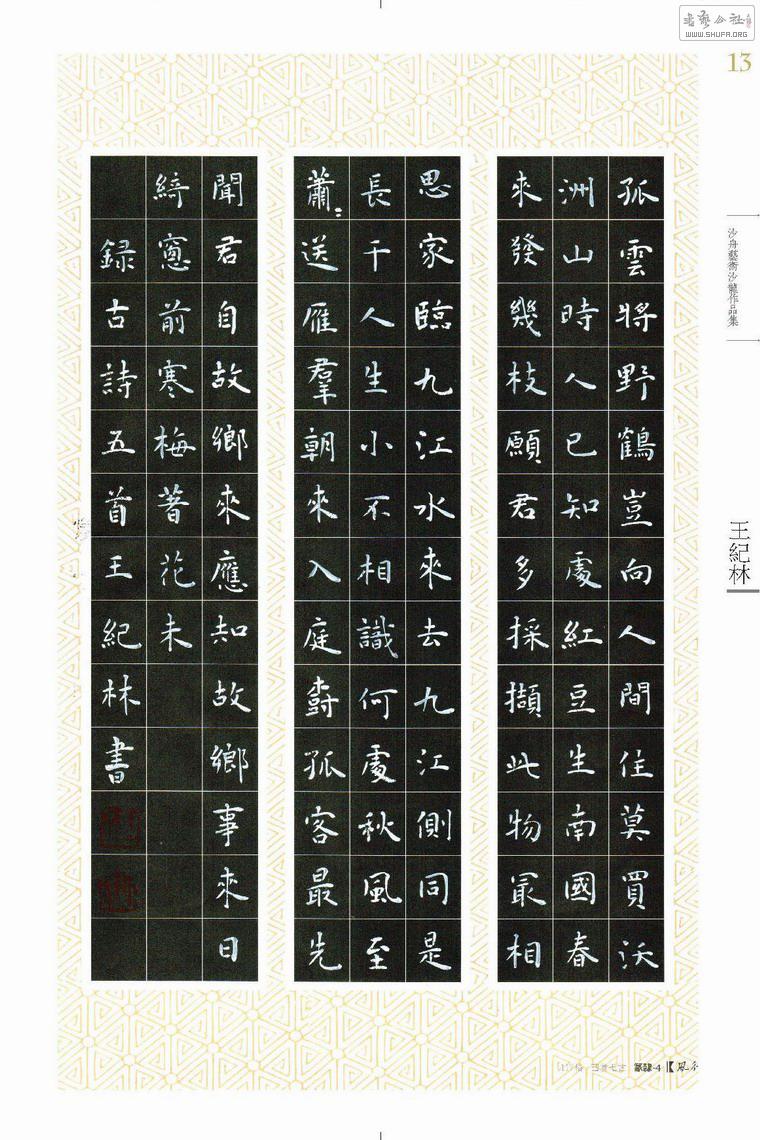 書藝公社
WWW.SHUFA.ORG
13
沙舟藝術沙龍作品集
王紀林
孤雲將野鶴豈向人間住莫買沃
洲山時人已知處紅豆生南國春
來發幾枝願君多採擷此物最相
思家臨九江水來去九江側同是
長干人生小不相識何處秋風至
蕭〻送雁羣朝來入庭樹孤客最先
聞君自故鄉來應知故鄉事來日
綺窻前寒梅著花未
録古詩五首王紀林書